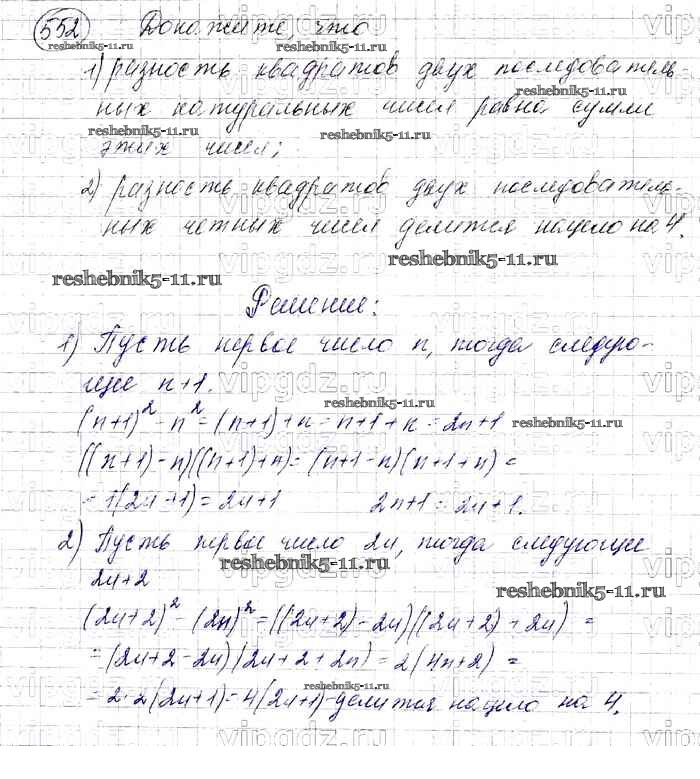 552 Докажите, что
1) разность квадратов двух последователь-
ных натуральных чисел равна сумме
этих чисел;
2) разность квадратов двух последователь-
ных четных чисел делится нацело на 4.
Решение:
1) Пусть первое число n, тогда следую-
щее n+1.
(n+1)² - n² = (n+1)+n = n+1+n = 2n+1
((n+1)-n)((n+1)+n) = (n+1-n)(n+1+n) =
= 1(2n+1) = 2n+1 2n+1 = 2n+1.
2) Пусть первое число 2n, тогда следующее
2n+2
(2n+2)² - (2n)² = ((2n+2)-2n)((2n+2)+2n) =
= (2n+2-2n)(2n+2+2n) = 2(4n+2) =
= 2·2(2n+1) = 4(2n+1) - делится нацело на 4.
reshebnik5-11.ru
vipgdz.ru